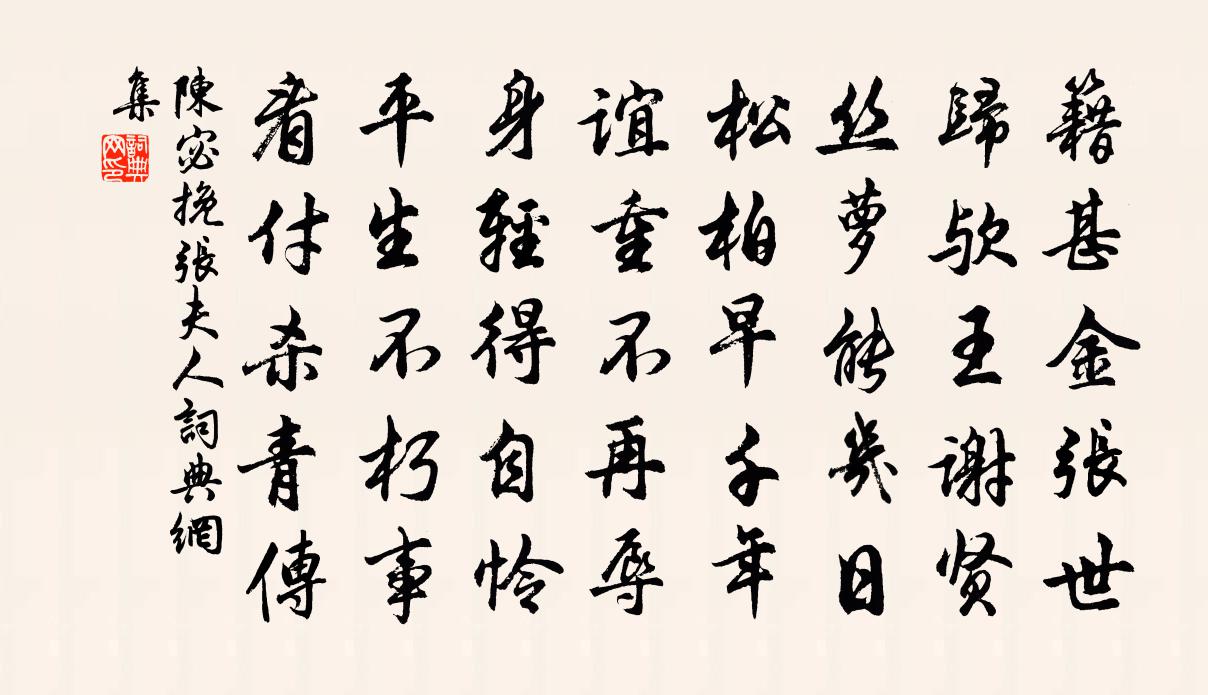 籍甚金張世
歸欤王謝贤
丝萝能幾日
松柏早千年
誼重不再辱
身輕得自怜
平生不朽事
看付杀青傳
陳宓挽張夫人詞典網
集
詞典网印